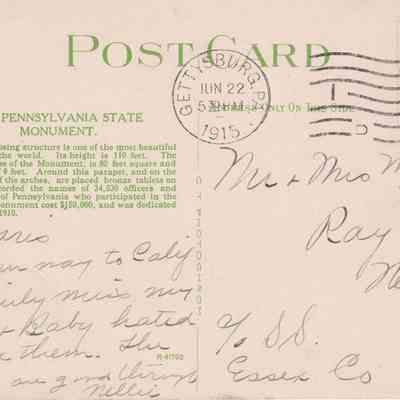 POST CARD
GETTYSBURG, PA.
JUN 22
5 30 PM
1915
ADDRESS ONLY ON THIS SIDE
PENNSYLVANIA STATE
MONUMENT.
osing structure is one of the most beautiful
the world. Its height is 110 feet. The
es of the Monument, is 80 feet square and
f 9 feet. Around this parapet, and on the
of the arches, are placed bronze tablets on
corded the names of 34,530 officers and
of Pennsylvania who participated in the
nument cost $150,000, and was dedicated
1910.
way to Calif
miss my
Baby hated
them. The
are good through
Nellie
R-41702
Mr & Mrs
Ray
Ne
% S.S.
Essex Co